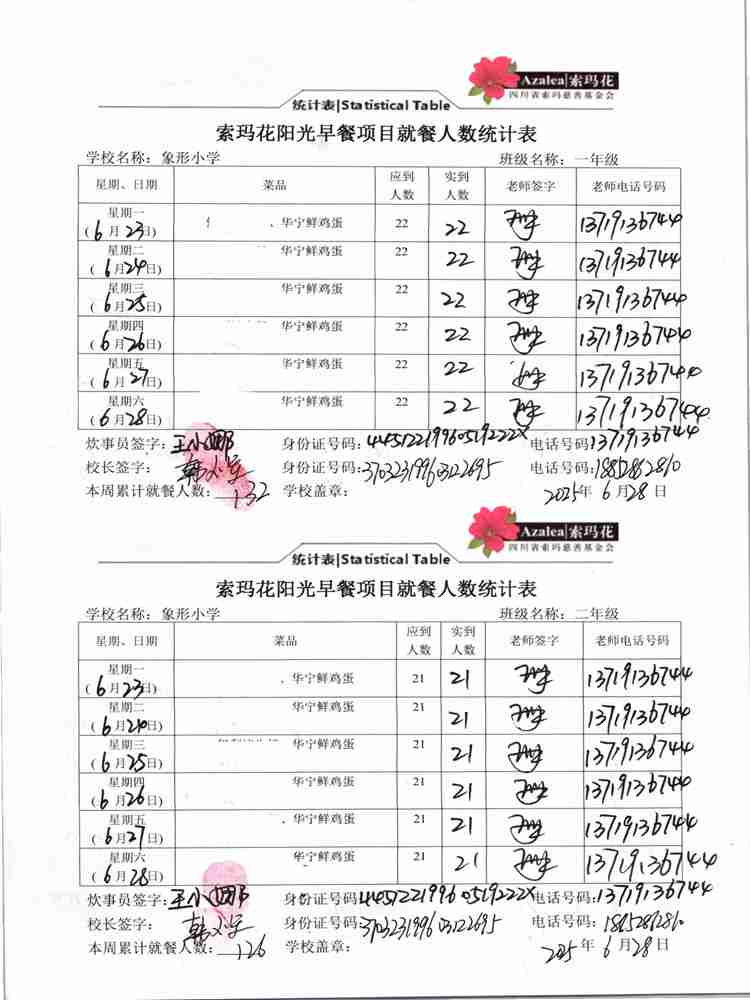 Azalea|索玛花
四川省索玛慈善基金会
统计表|Statistical Table
索玛花阳光早餐项目就餐人数统计表
学校名称：象形小学 班级名称：一年级
星期、日期 菜品 应到人数 实到人数 老师签字 老师电话号码
星期一 (6月23日) 、华宁鲜鸡蛋 22 22 13719136744
星期二 (6月24日) 华宁鲜鸡蛋 22 22 13719136744
星期三 (6月25日) 华宁鲜鸡蛋 22 22 13719136744
星期四 (6月26日) 华宁鲜鸡蛋 22 22 13719136744
星期五 (6月27日) 华宁鲜鸡蛋 22 22 13719136744
星期六 (6月28日) 华宁鲜鸡蛋 22 22 13719136744
炊事员签字：王小娜 身份证号码：44512219960519222X 电话号码：13719136744
校长签字： 身份证号码：370323199603122695 电话号码：
本周累计就餐人数：132 学校盖章： 2025年6月28日
Azalea|索玛花
四川省索玛慈善基金会
统计表|Statistical Table
索玛花阳光早餐项目就餐人数统计表
学校名称：象形小学 班级名称：二年级
星期、日期 菜品 应到人数 实到人数 老师签字 老师电话号码
星期一 (6月23日) 、华宁鲜鸡蛋 21 21 13719136744
星期二 (6月24日) 华宁鲜鸡蛋 21 21 13719136744
星期三 (6月25日) 华宁鲜鸡蛋 21 21 13719136744
星期四 (6月26日) 华宁鲜鸡蛋 21 21 13719136744
星期五 (6月27日) 、华宁鲜鸡蛋 21 21 13719136744
星期六 (6月28日) 华宁鲜鸡蛋 21 21 13719136744
炊事员签字：王小娜 身份证号码：44512219960519222X 电话号码：13719136744
校长签字： 身份证号码：370323199603122695 电话号码：
本周累计就餐人数：126 学校盖章： 2025年6月28日